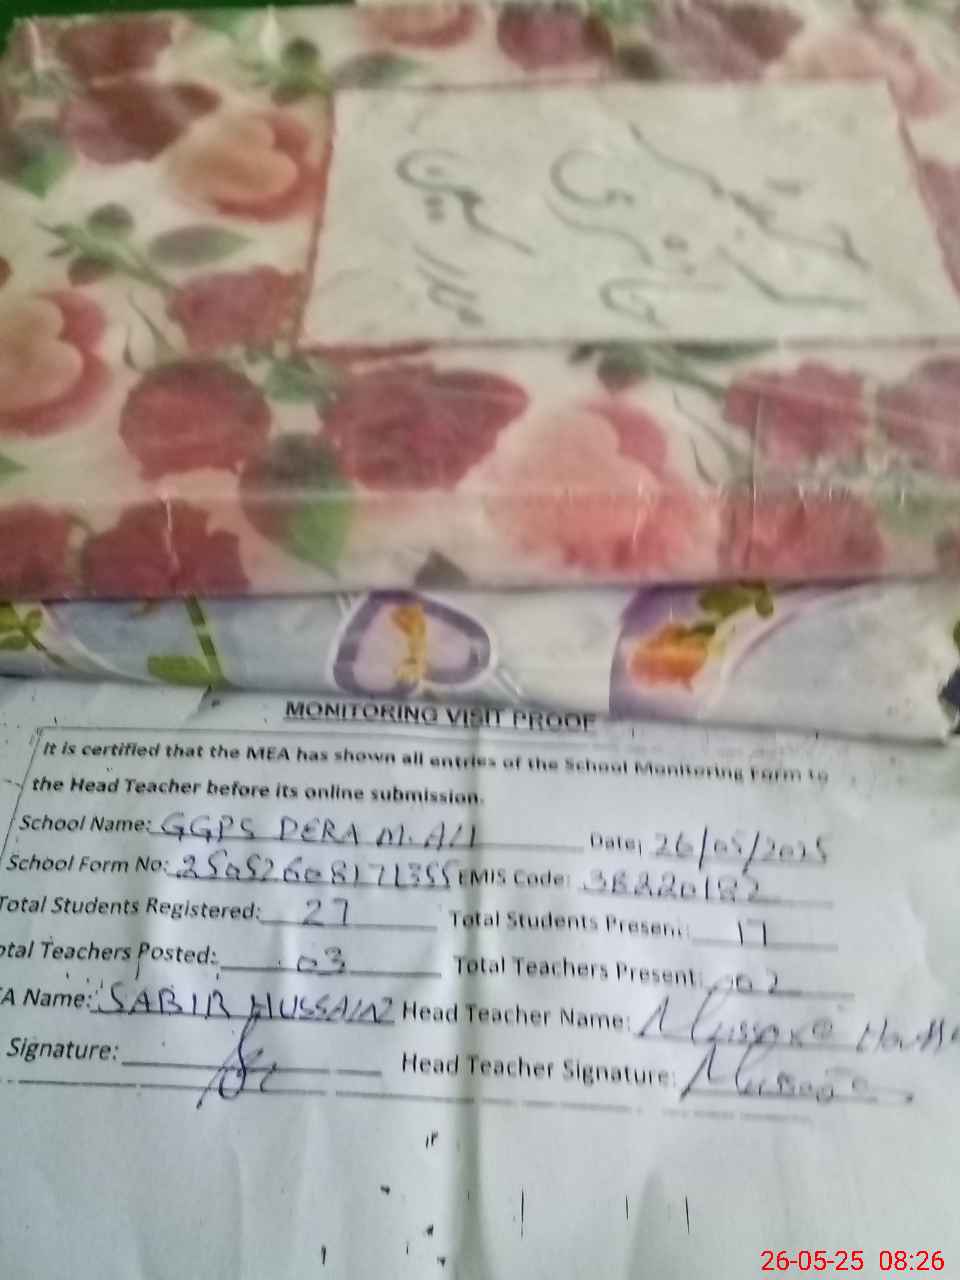 MONITORING VISIT PROOF
It is certified that the MEA has shown all entries of the School Monitoring Form to
the Head Teacher before its online submission.
School Name: GGPS DERA M. ALI Date: 26/05/2025
School Form No: 25052608171355 EMIS Code: 38220182
Total Students Registered: 27 Total Students Present: 17
otal Teachers Posted: 03 Total Teachers Present: 02
A Name: SABIR HUSSAIN Head Teacher Name:
Signature: Head Teacher Signature:
26-05-25 08:26